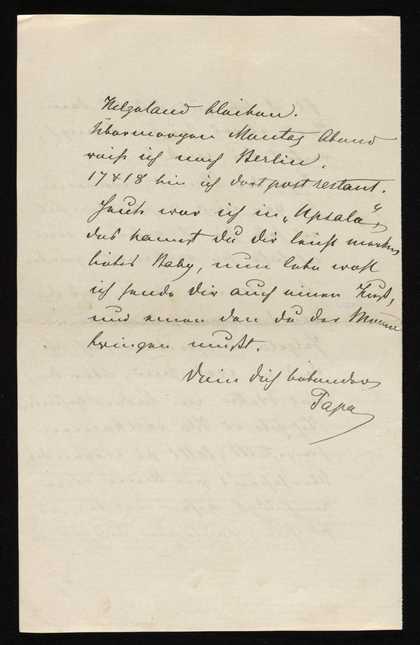 Helgoland bleiben.
Übermorgen Montag Abend
reise ich nach Berlin.
17 & 18 bin ich dort postrestant.
Heute war ich in „Upsala“,
das kannst du dir leicht merken
liebes Baby, nun lebe wohl
ich sende Dir auch einen Kuß,
und einen den du der Mama
bringen mußt.
Dein dich liebender
Papa